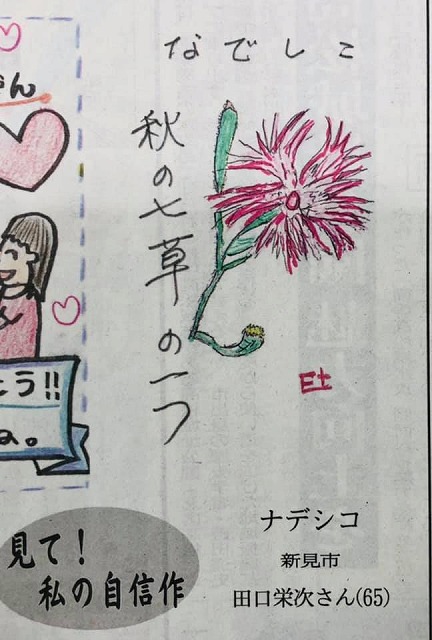 なでしこ
秋の七草の一つ
ん
とう!!
ね。
見て!
私の自信作
ナデシコ
新見市
田口栄次さん(65)